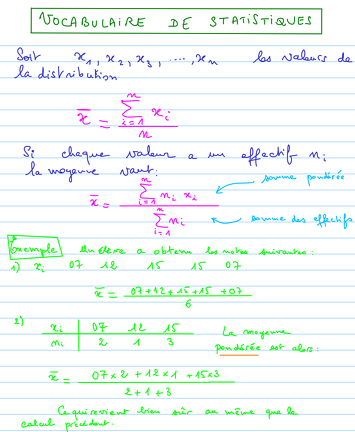 VOCABULAIRE DE STATISTIQUES
Soit x₁, x₂, x₃, ..., xₙ les valeurs de
la distribution
x̄ = ∑ᵢ₌₁ⁿ xᵢ / n
Si chaque valeur a un effectif nᵢ
la moyenne vaut:
x̄ = ∑ᵢ₌₁ⁿ nᵢ xᵢ / ∑ᵢ₌₁ⁿ nᵢ
somme pondérée
somme des effectifs
Exemple Un élève a obtenu les notes suivantes:
1) xᵢ 07 12 15 15 07
x̄ = 07+12+15+15+07 / 6
2) xᵢ 07 12 15
nᵢ 2 1 3
La moyenne
pondérée est alors:
x̄ = 07×2 + 12×1 + 15×3 / 2+1+3
Ce qui revient bien sûr au même que le
calcul précédent.